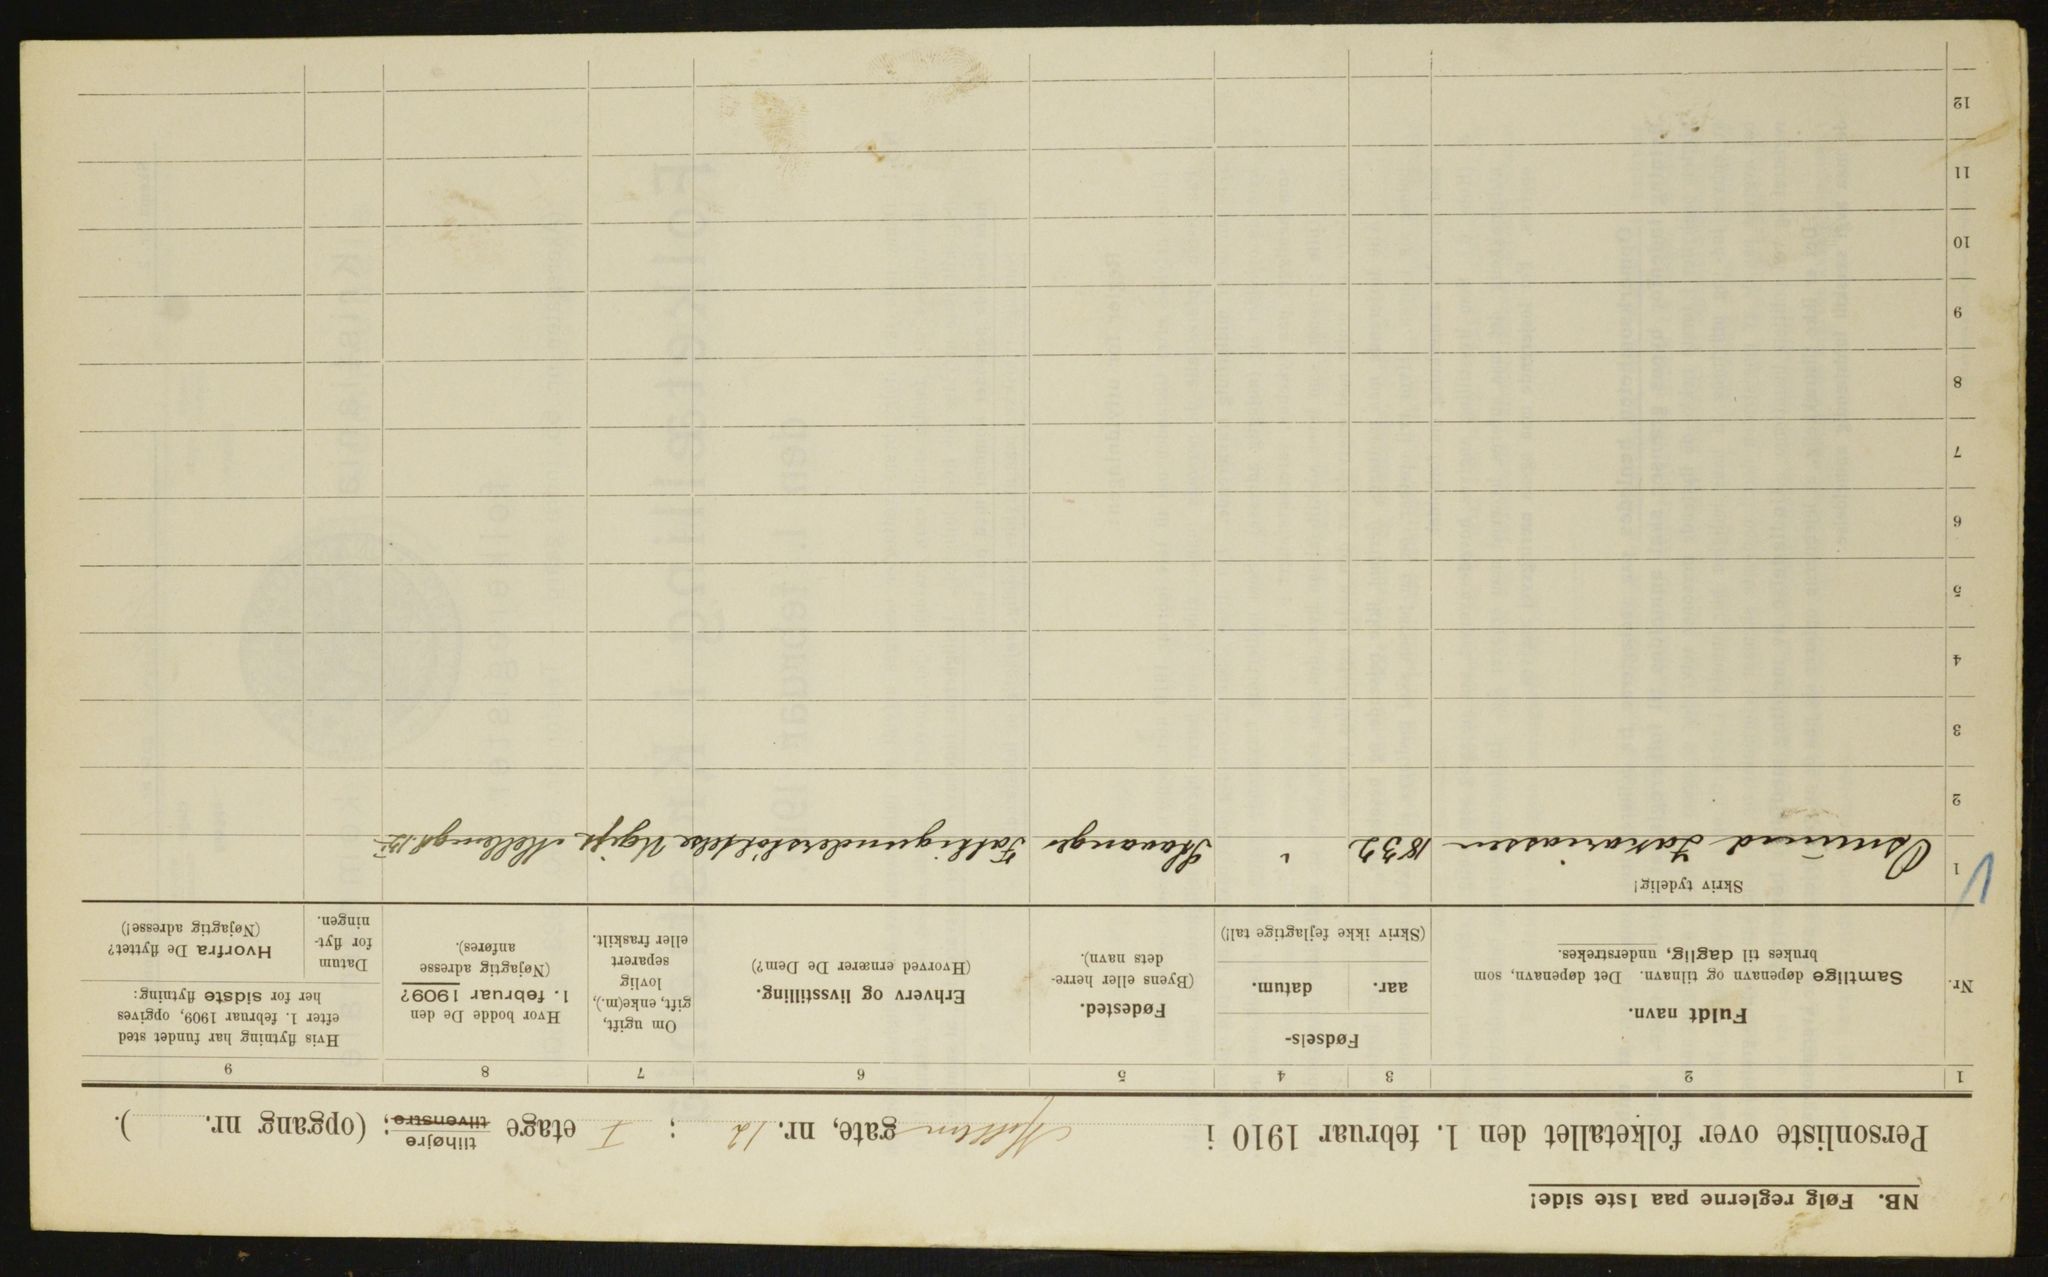 NB. Følg reglerne paa 1ste side!
Personliste over folketallet den 1. februar 1910 i Mellem gate, nr. 12; I etage tilhøjre tilvenstre; (opgang nr. ).
1 2 3 4 5 6 7 8 9
Nr.
Fuldt navn.
Samtlige døpenavn og tilnavn. Det døpenavn, som
brukes til daglig, understrekes.
Fødsels-
aar. datum.
(Skriv ikke fejlagtige tal!)
Fødested.
(Byens eller herre-
dets navn).
Erhverv og livsstilling.
(Hvorved ernærer De Dem?)
Om ugift,
gift, enke(m.),
lovlig
separert
eller fraskilt.
Hvor bodde De den
1. februar 1909?
(Nøjagtig adresse
anføres).
Hvis flytning har fundet sted
efter 1. februar 1909, opgives
her for sidste flytning:
Datum
for flyt-
ningen.
Hvorfra De flyttet?
(Nøjagtig adresse!)
Skriv tydelig!
1 Osmund Zakariassen 1832 " Stavanger Fattigunderstøttelse Ugift Mellemgt.
2
3
4
5
6
7
8
9
10
11
12